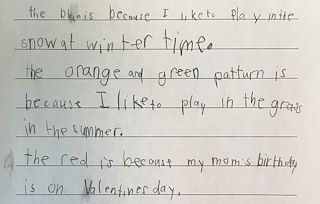 the blue is because I like to play in the
snow at winter time.
the orange and green patturn is
because I like to play in the grass
in the summer.
the red is because my mom's birthday
is on Valentines day.